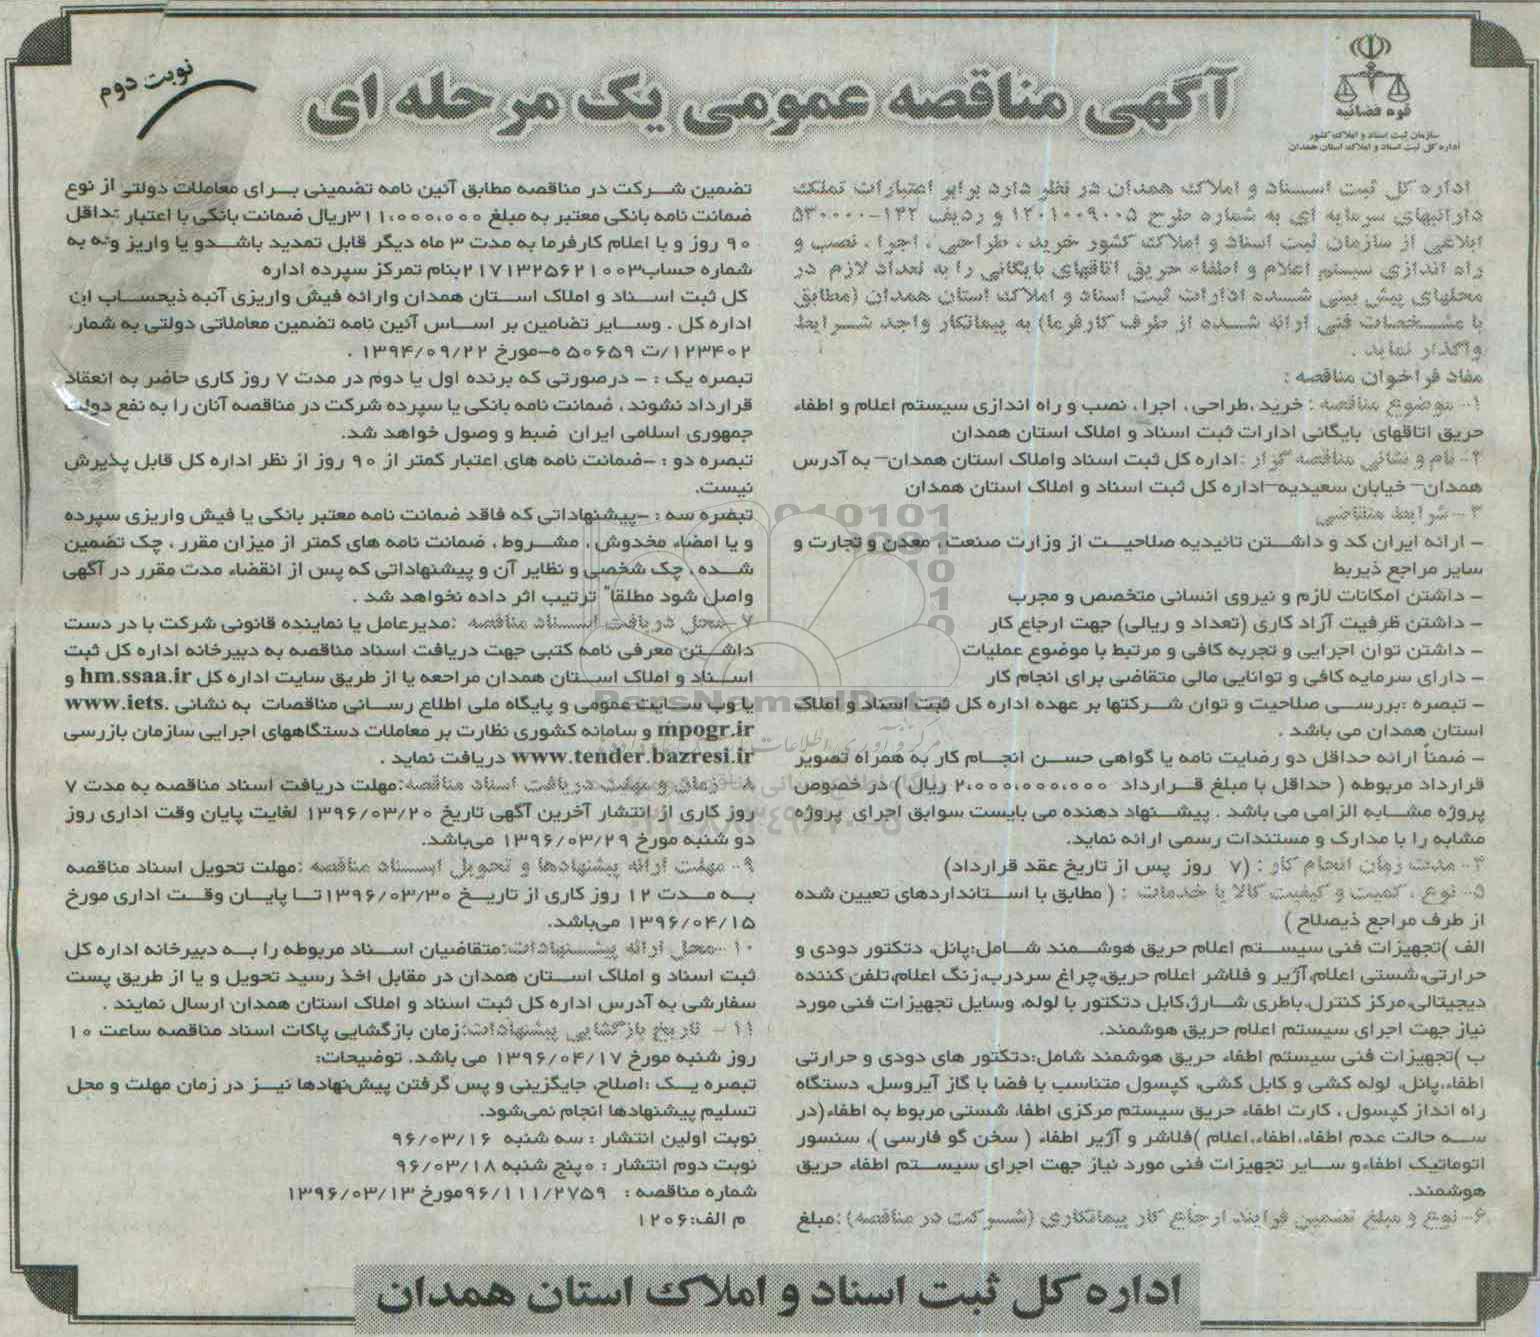 نوبت دوم
آگهی مناقصه عمومی یک مرحله ای
قوه قضائیه
سازمان ثبت اسناد و املاک کشور
اداره کل ثبت اسناد و املاک استان همدان
اداره کل ثبت اسناد و املاک همدان در نظر دارد برابر اعتبارات تملک
دارائیهای سرمایه ای به شماره طرح ۱۲۰۱۰۰۹۰۰۵ و ردیف ۱۴۲-۵۳۰۰۰۰
ابلاغی از سازمان ثبت اسناد و املاک کشور خرید ، طراحی ، اجرا ، نصب و
راه اندازی سیستم اعلام و اطفاء حریق اتاقهای بایگانی را به تعداد لازم در
محلهای پیش بینی شده ادارات ثبت اسناد و املاک استان همدان (مطابق
با مشخصات فنی ارائه شده از طرف کارفرما) به پیمانکار واجد شرایط
واگذار نماید .
مفاد فراخوان مناقصه :
۱- موضوع مناقصه : خرید ،طراحی ، اجرا ، نصب و راه اندازی سیستم اعلام و اطفاء
حریق اتاقهای بایگانی ادارات ثبت اسناد و املاک استان همدان
۲- نام و نشانی مناقصه گزار :اداره کل ثبت اسناد واملاک استان همدان- به آدرس
همدان- خیابان سعیدیه-اداره کل ثبت اسناد و املاک استان همدان
۳ - شرایط متقاضی
- ارائه ایران کد و داشتن تائیدیه صلاحیت از وزارت صنعت ، معدن و تجارت و
سایر مراجع ذیربط
- داشتن امکانات لازم و نیروی انسانی متخصص و مجرب
- داشتن ظرفیت آزاد کاری (تعداد و ریالی) جهت ارجاع کار
- داشتن توان اجرایی و تجربه کافی و مرتبط با موضوع عملیات
- دارای سرمایه کافی و توانایی مالی متقاضی برای انجام کار
- تبصره :بررسی صلاحیت و توان شرکتها بر عهده اداره کل ثبت اسناد و املاک
استان همدان می باشد .
- ضمناً ارائه حداقل دو رضایت نامه یا گواهی حسن انجام کار به همراه تصویر
قرارداد مربوطه ( حداقل با مبلغ قرارداد ۲،۰۰۰،۰۰۰،۰۰۰ ریال ) در خصوص
پروژه مشابه الزامی می باشد . پیشنهاد دهنده می بایست سوابق اجرای پروژه
مشابه را با مدارک و مستندات رسمی ارائه نماید.
۴- مدت زمان انجام کار : (۷ روز پس از تاریخ عقد قرارداد)
۵- نوع ، کمیت و کیفیت کالا یا خدمات : ( مطابق با استانداردهای تعیین شده
از طرف مراجع ذیصلاح )
الف )تجهیزات فنی سیستم اعلام حریق هوشمند شامل:پانل، دتکتور دودی و
حرارتی،شستی اعلام،آژیر و فلاشر اعلام حریق،چراغ سردرب،زنگ اعلام،تلفن کننده
دیجیتالی،مرکز کنترل،باطری شارژ،کابل دتکتور با لوله، وسایل تجهیزات فنی مورد
نیاز جهت اجرای سیستم اعلام حریق هوشمند.
ب )تجهیزات فنی سیستم اطفاء حریق هوشمند شامل:دتکتور های دودی و حرارتی
اطفاء،پانل، لوله کشی و کابل کشی، کپسول متناسب با فضا با گاز آیروسل، دستگاه
راه انداز کپسول ، کارت اطفاء حریق سیستم مرکزی اطفاء، شستی مربوط به اطفاء(در
سه حالت عدم اطفاء،اطفاء،اعلام )فلاشر و آژیر اطفاء ( سخن گو فارسی )، سنسور
اتوماتیک اطفاءو سایر تجهیزات فنی مورد نیاز جهت اجرای سیستم اطفاء حریق
هوشمند.
۶- نوع و مبلغ تضمین فرایند ارجاع کار پیمانکاری (شرکت در مناقصه) :مبلغ
تضمین شرکت در مناقصه مطابق آئین نامه تضمینی برای معاملات دولتی از نوع
ضمانت نامه بانکی معتبر به مبلغ ۳۱۱،۰۰۰،۰۰۰ریال ضمانت بانکی با اعتبار حداقل
۹۰ روز و با اعلام کارفرما به مدت ۳ ماه دیگر قابل تمدید باشدو یا واریز وجه به
شماره حساب۲۱۷۱۳۲۵۶۲۱۰۰۳بنام تمرکز سپرده اداره
کل ثبت اسناد و املاک استان همدان وارائه فیش واریزی آنبه ذیحساب این
اداره کل . وسایر تضامین بر اساس آئین نامه تضمین معاملاتی دولتی به شمار
۱۲۳۴۰۲/ت ۵۰۶۵۹ ه-مورخ ۱۳۹۴/۰۹/۲۲ .
تبصره یک : - درصورتی که برنده اول یا دوم در مدت ۷ روز کاری حاضر به انعقاد
قرارداد نشوند ، ضمانت نامه بانکی یا سپرده شرکت در مناقصه آنان را به نفع دولت
جمهوری اسلامی ایران ضبط و وصول خواهد شد.
تبصره دو : -ضمانت نامه های اعتبار کمتر از ۹۰ روز از نظر اداره کل قابل پذیرش
نیست.
تبصره سه : -پیشنهاداتی که فاقد ضمانت نامه معتبر بانکی یا فیش واریزی سپرده
و یا امضاء مخدوش ، مشروط ، ضمانت نامه های کمتر از میزان مقرر ، چک تضمین
شده ، چک شخصی و نظایر آن و پیشنهاداتی که پس از انقضاء مدت مقرر در آگهی
واصل شود مطلقا" ترتیب اثر داده نخواهد شد .
۷-محل دریافت اسناد مناقصه :مدیرعامل یا نماینده قانونی شرکت با در دست
داشتن معرفی نامه کتبی جهت دریافت اسناد مناقصه به دبیرخانه اداره کل ثبت
اسناد و املاک استان همدان مراجعه یا از طریق سایت اداره کل hm.ssaa.ir و
یا وب سایت عمومی و پایگاه ملی اطلاع رسانی مناقصات به نشانی www.iets.
mpogr.ir و سامانه کشوری نظارت بر معاملات دستگاههای اجرایی سازمان بازرسی
www.tender.bazresi.ir دریافت نماید .
۸ - زمان و مهلت دریافت اسناد مناقصه:مهلت دریافت اسناد مناقصه به مدت ۷
روز کاری از انتشار آخرین آگهی تاریخ ۱۳۹۶/۰۳/۲۰ لغایت پایان وقت اداری روز
دو شنبه مورخ ۱۳۹۶/۰۳/۲۹ می‌باشد.
۹- مهلت ارائه پیشنهادها و تحویل اسناد مناقصه :مهلت تحویل اسناد مناقصه
به مدت ۱۲ روز کاری از تاریخ ۱۳۹۶/۰۳/۳۰تا پایان وقت اداری مورخ
۱۳۹۶/۰۴/۱۵ می‌باشد.
۱۰-محل ارائه پیشنهادات:متقاضیان اسناد مربوطه را به دبیرخانه اداره کل
ثبت اسناد و املاک استان همدان در مقابل اخذ رسید تحویل و یا از طریق پست
سفارشی به آدرس اداره کل ثبت اسناد و املاک استان همدان ارسال نمایند .
۱۱- تاریخ بازگشایی پیشنهادات:زمان بازگشایی پاکات اسناد مناقصه ساعت ۱۰
روز شنبه مورخ ۱۳۹۶/۰۴/۱۷ می باشد. توضیحات:
تبصره یک :اصلاح، جایگزینی و پس گرفتن پیش‌نهادها نیز در زمان مهلت و محل
تسلیم پیشنهادها انجام نمی‌شود.
نوبت اولین انتشار : سه شنبه ۹۶/۰۳/۱۶
نوبت دوم انتشار : ۰پنج شنبه ۹۶/۰۳/۱۸
شماره مناقصه : ۹۶/۱۱۱/۲۷۵۹مورخ ۱۳۹۶/۰۳/۱۳
م الف:۱۲۰۶
اداره کل ثبت اسناد و املاک استان همدان
ParsNamadData